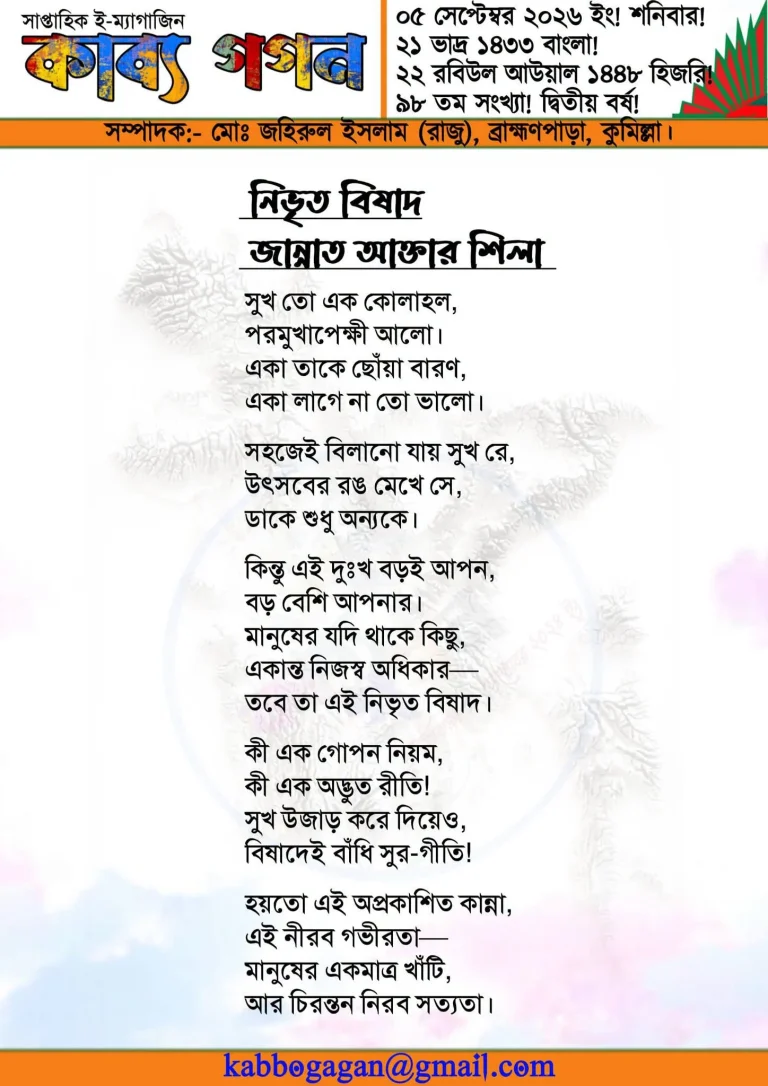 সাপ্তাহিক ই-ম্যাগাজিন
কাব্য গগন
০৫ সেপ্টেম্বর ২০২৬ ইং! শনিবার!
২১ ভাদ্র ১৪৩৩ বাংলা!
২২ রবিউল আউয়াল ১৪৪৮ হিজরি!
৯৮ তম সংখ্যা! দ্বিতীয় বর্ষ!
সম্পাদক:- মোঃ জহিরুল ইসলাম (রাজু), ব্রাহ্মণপাড়া, কুমিল্লা।
নিভৃত বিষাদ
জান্নাত আক্তার শিলা
সুখ তো এক কোলাহল,
পরমুখাপেক্ষী আলো।
একা তাকে ছোঁয়া বারণ,
একা লাগে না তো ভালো।
সহজেই বিলানো যায় সুখ রে,
উৎসবের রঙ মেখে সে,
ডাকে শুধু অন্যকে।
কিন্তু এই দুঃখ বড়ই আপন,
বড় বেশি আপনার।
মানুষের যদি থাকে কিছু,
একান্ত নিজস্ব অধিকার—
তবে তা এই নিভৃত বিষাদ।
কী এক গোপন নিয়ম,
কী এক অদ্ভুত রীতি!
সুখ উজাড় করে দিয়েও,
বিষাদেই বাঁধি সুর-গীতি!
হয়তো এই অপ্রকাশিত কান্না,
এই নীরব গভীরতা—
মানুষের একমাত্র খাঁটি,
আর চিরন্তন নিরব সত্যতা।
kabbogagan@gmail.com